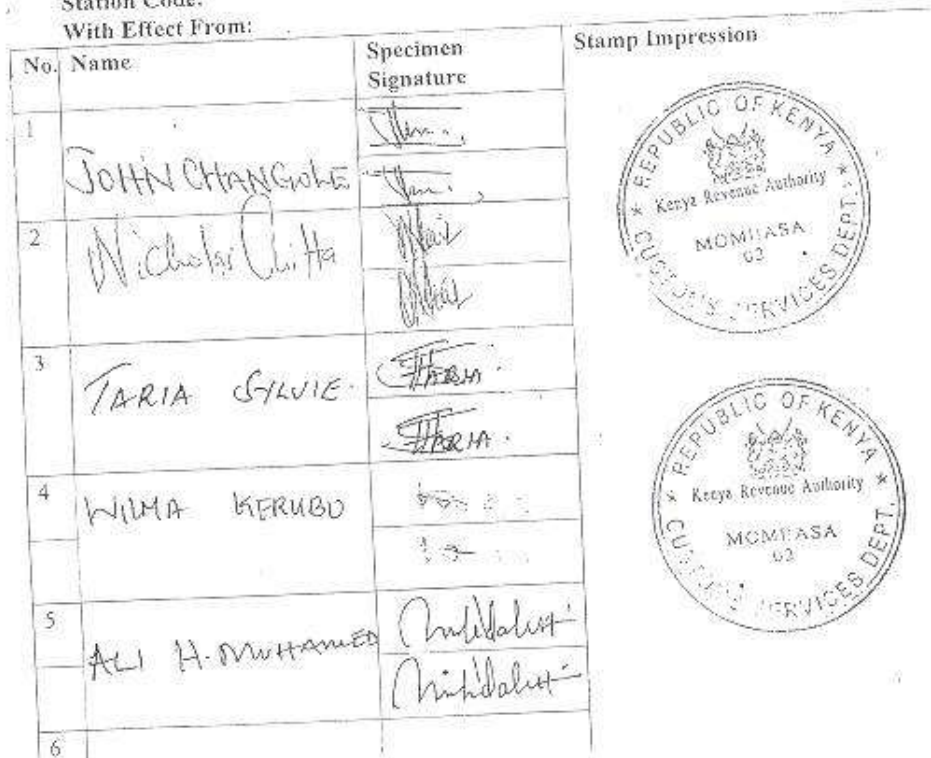 Station Code:
With Effect From:
No. Name Specimen Signature Stamp Impression
1 JOHN CHANGOLE
2 Nicholas Chitta
3 TARIA SYLVIE.
TARIA.
TARIA.
4 WILMA KERUBO
5 ALI H. MUHAMED
6
REPUBLIC OF KENYA
Kenya Revenue Authority
MOMBASA
02
CUSTOMS SERVICES DEPT.
REPUBLIC OF KENYA
Kenya Revenue Authority
MOMBASA
02
CUSTOMS SERVICES DEPT.